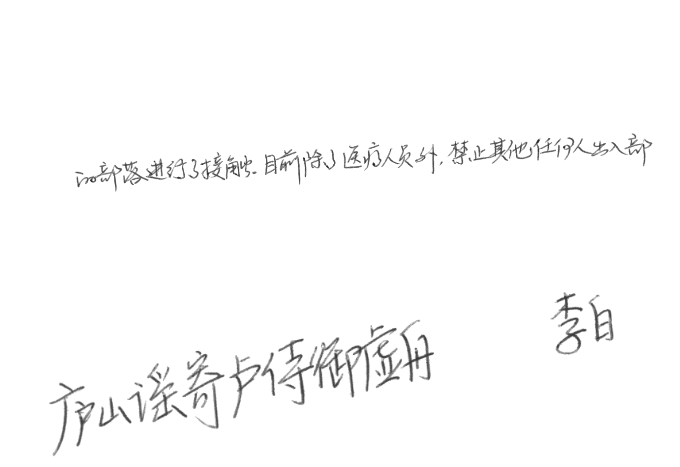 的部落进行了接触。目前除了医疗人员外，禁止其他任何人出入部
庐山谣寄卢侍御虚舟 李白